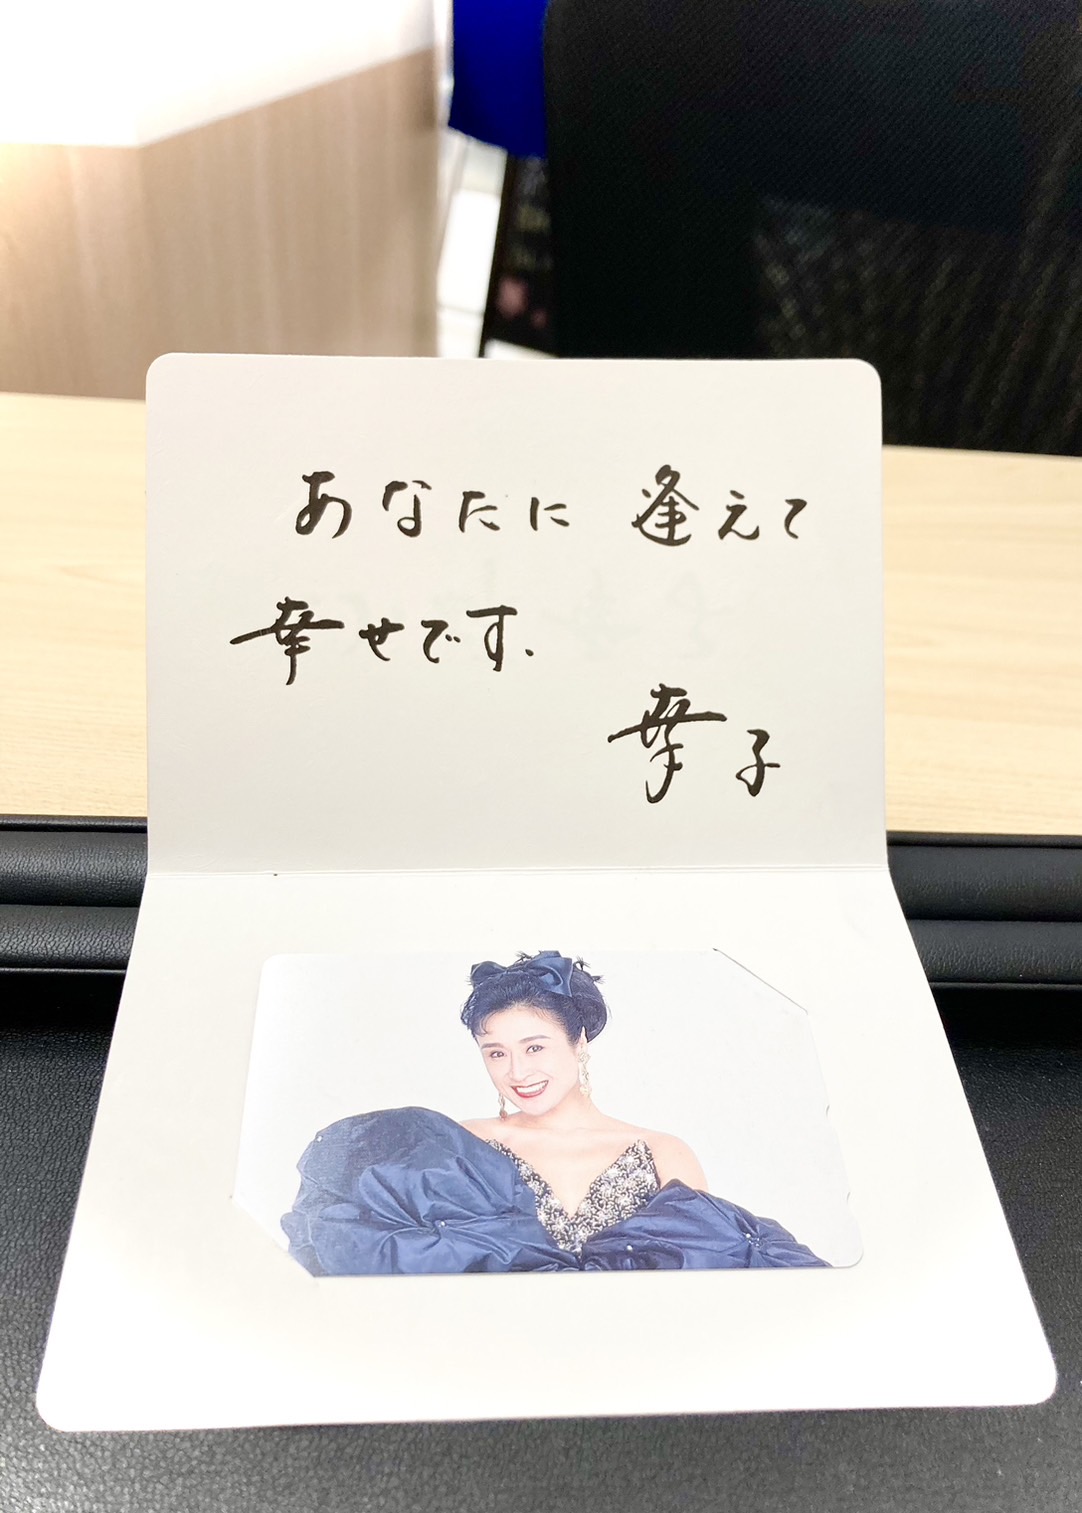 あなたに 逢えて
幸せです.
幸子